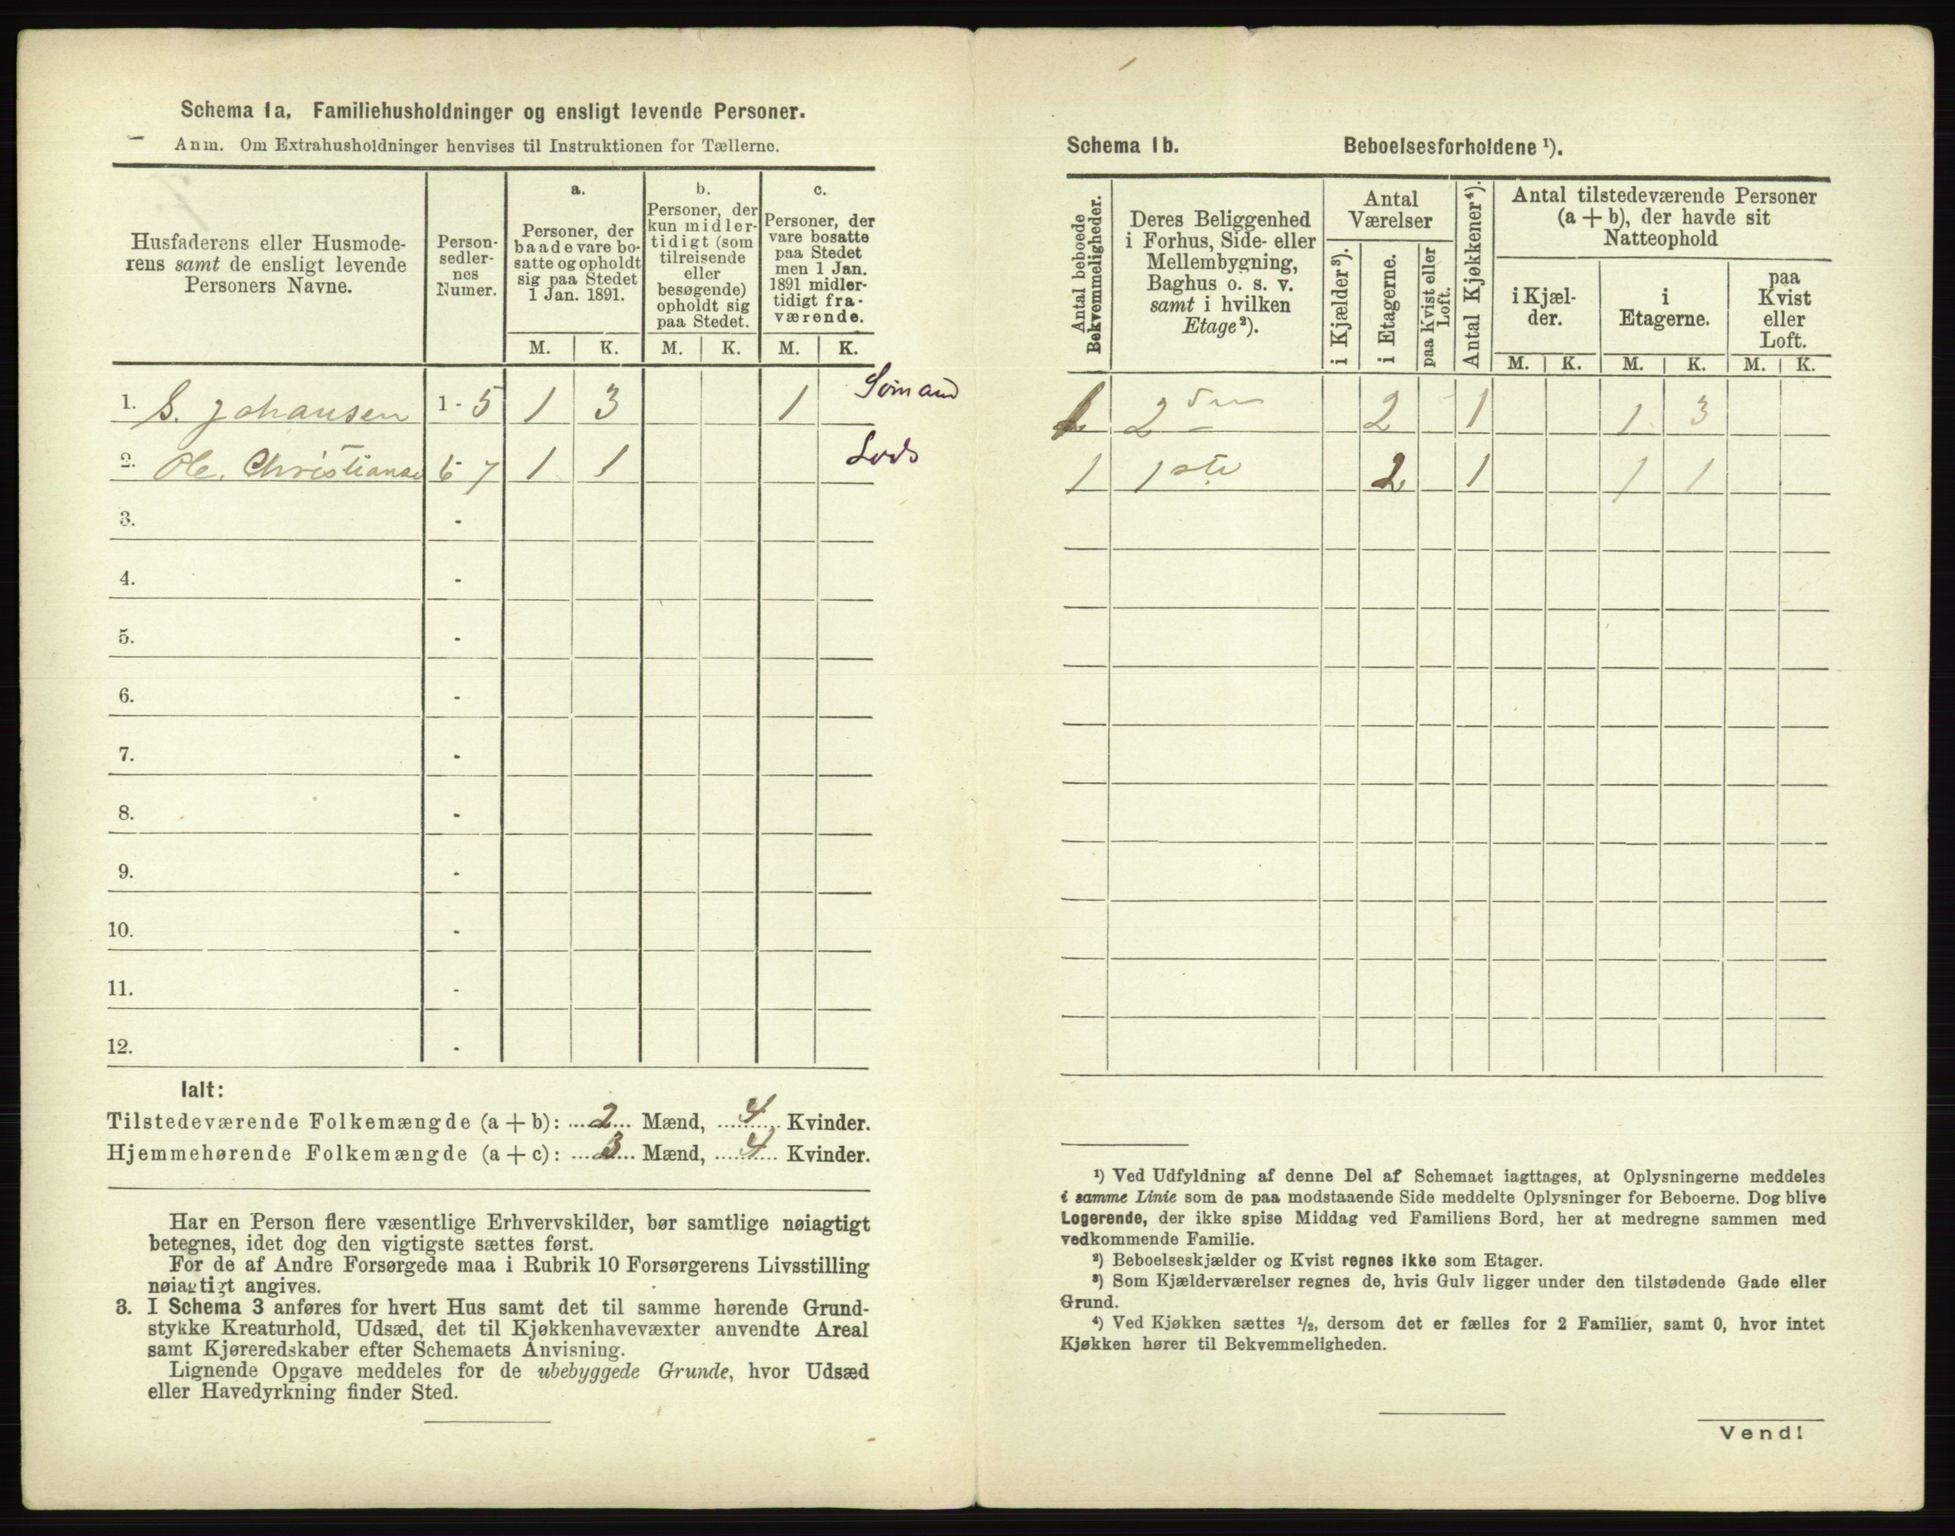 Schema 1a. Familiehusholdninger og ensligt levende Personer.
Anm. Om Extrahusholdninger henvises til Instruktionen for Tællerne.
Husfaderens eller Husmoderens samt de ensligt levende Personers Navne.
Personsedlernes Numer.
a.
Personer, der baade vare bosatte og opholdt sig paa Stedet 1 Jan. 1891.
b.
Personer, der kun midlertidigt (som tilreisende eller besøgende) opholdt sig paa Stedet.
c.
Personer, der vare bosatte paa Stedet men 1 Jan. 1891 midlertidigt fraværende.
M. K. M. K. M. K.
1. S. Johansen 1 - 5 1 3 1 Sømand
2. Ole. Christianse 6 - 7 1 1 Lods
3. -
4. -
5. -
6. -
7. -
8. -
9. -
10. -
11. -
12. -
Ialt:
Tilstedeværende Folkemængde (a + b): 2 Mænd, 4 Kvinder.
Hjemmehørende Folkemængde (a + c): 3 Mænd, 4 Kvinder.
Har en Person flere væsentlige Erhvervskilder, bør samtlige nøiagtigt
betegnes, idet dog den vigtigste sættes først.
For de af Andre Forsørgede maa i Rubrik 10 Forsørgerens Livsstilling
nøiagtigt angives.
3. I Schema 3 anføres for hvert Hus samt det til samme hørende Grund-
stykke Kreaturhold, Udsæd, det til Kjøkkenhavevæxter anvendte Areal
samt Kjøreredskaber efter Schemaets Anvisning.
Lignende Opgave meddeles for de ubebyggede Grunde, hvor Udsæd
eller Havedyrkning finder Sted.
Schema 1b. Beboelsesforholdene ¹).
Antal beboede Bekvemmeligheder.
Deres Beliggenhed i Forhus, Side- eller Mellembygning, Baghus o. s. v. samt i hvilken Etage ²).
Antal Værelser
i Kjælder ³).
i Etagerne.
paa Kvist eller Loft.
Antal Kjøkkener ⁴).
Antal tilstedeværende Personer (a + b), der havde sit Natteophold
i Kjælder.
i Etagerne.
paa Kvist eller Loft.
M. K. M. K. M. K.
1 2 den 2 1 1 3
1 1 ste 2 1 1 1
¹) Ved Udfyldning af denne Del af Schemaet iagttages, at Oplysningerne meddeles
i samme Linie som de paa modstaaende Side meddelte Oplysninger for Beboerne. Dog blive
Logerende, der ikke spise Middag ved Familiens Bord, her at medregne sammen med
vedkommende Familie.
²) Beboelseskjælder og Kvist regnes ikke som Etager.
³) Som Kjælderværelser regnes de, hvis Gulv ligger under den tilstødende Gade eller
Grund.
⁴) Ved Kjøkken sættes ½, dersom det er fælles for 2 Familier, samt 0, hvor intet
Kjøkken hører til Bekvemmeligheden.
Vend!